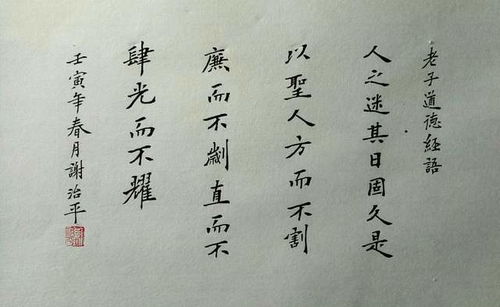 老子道德经語
人之迷其日固久是
以聖人方而不割
廉而不劌直而不
肆光而不耀
壬寅年春月謝治平